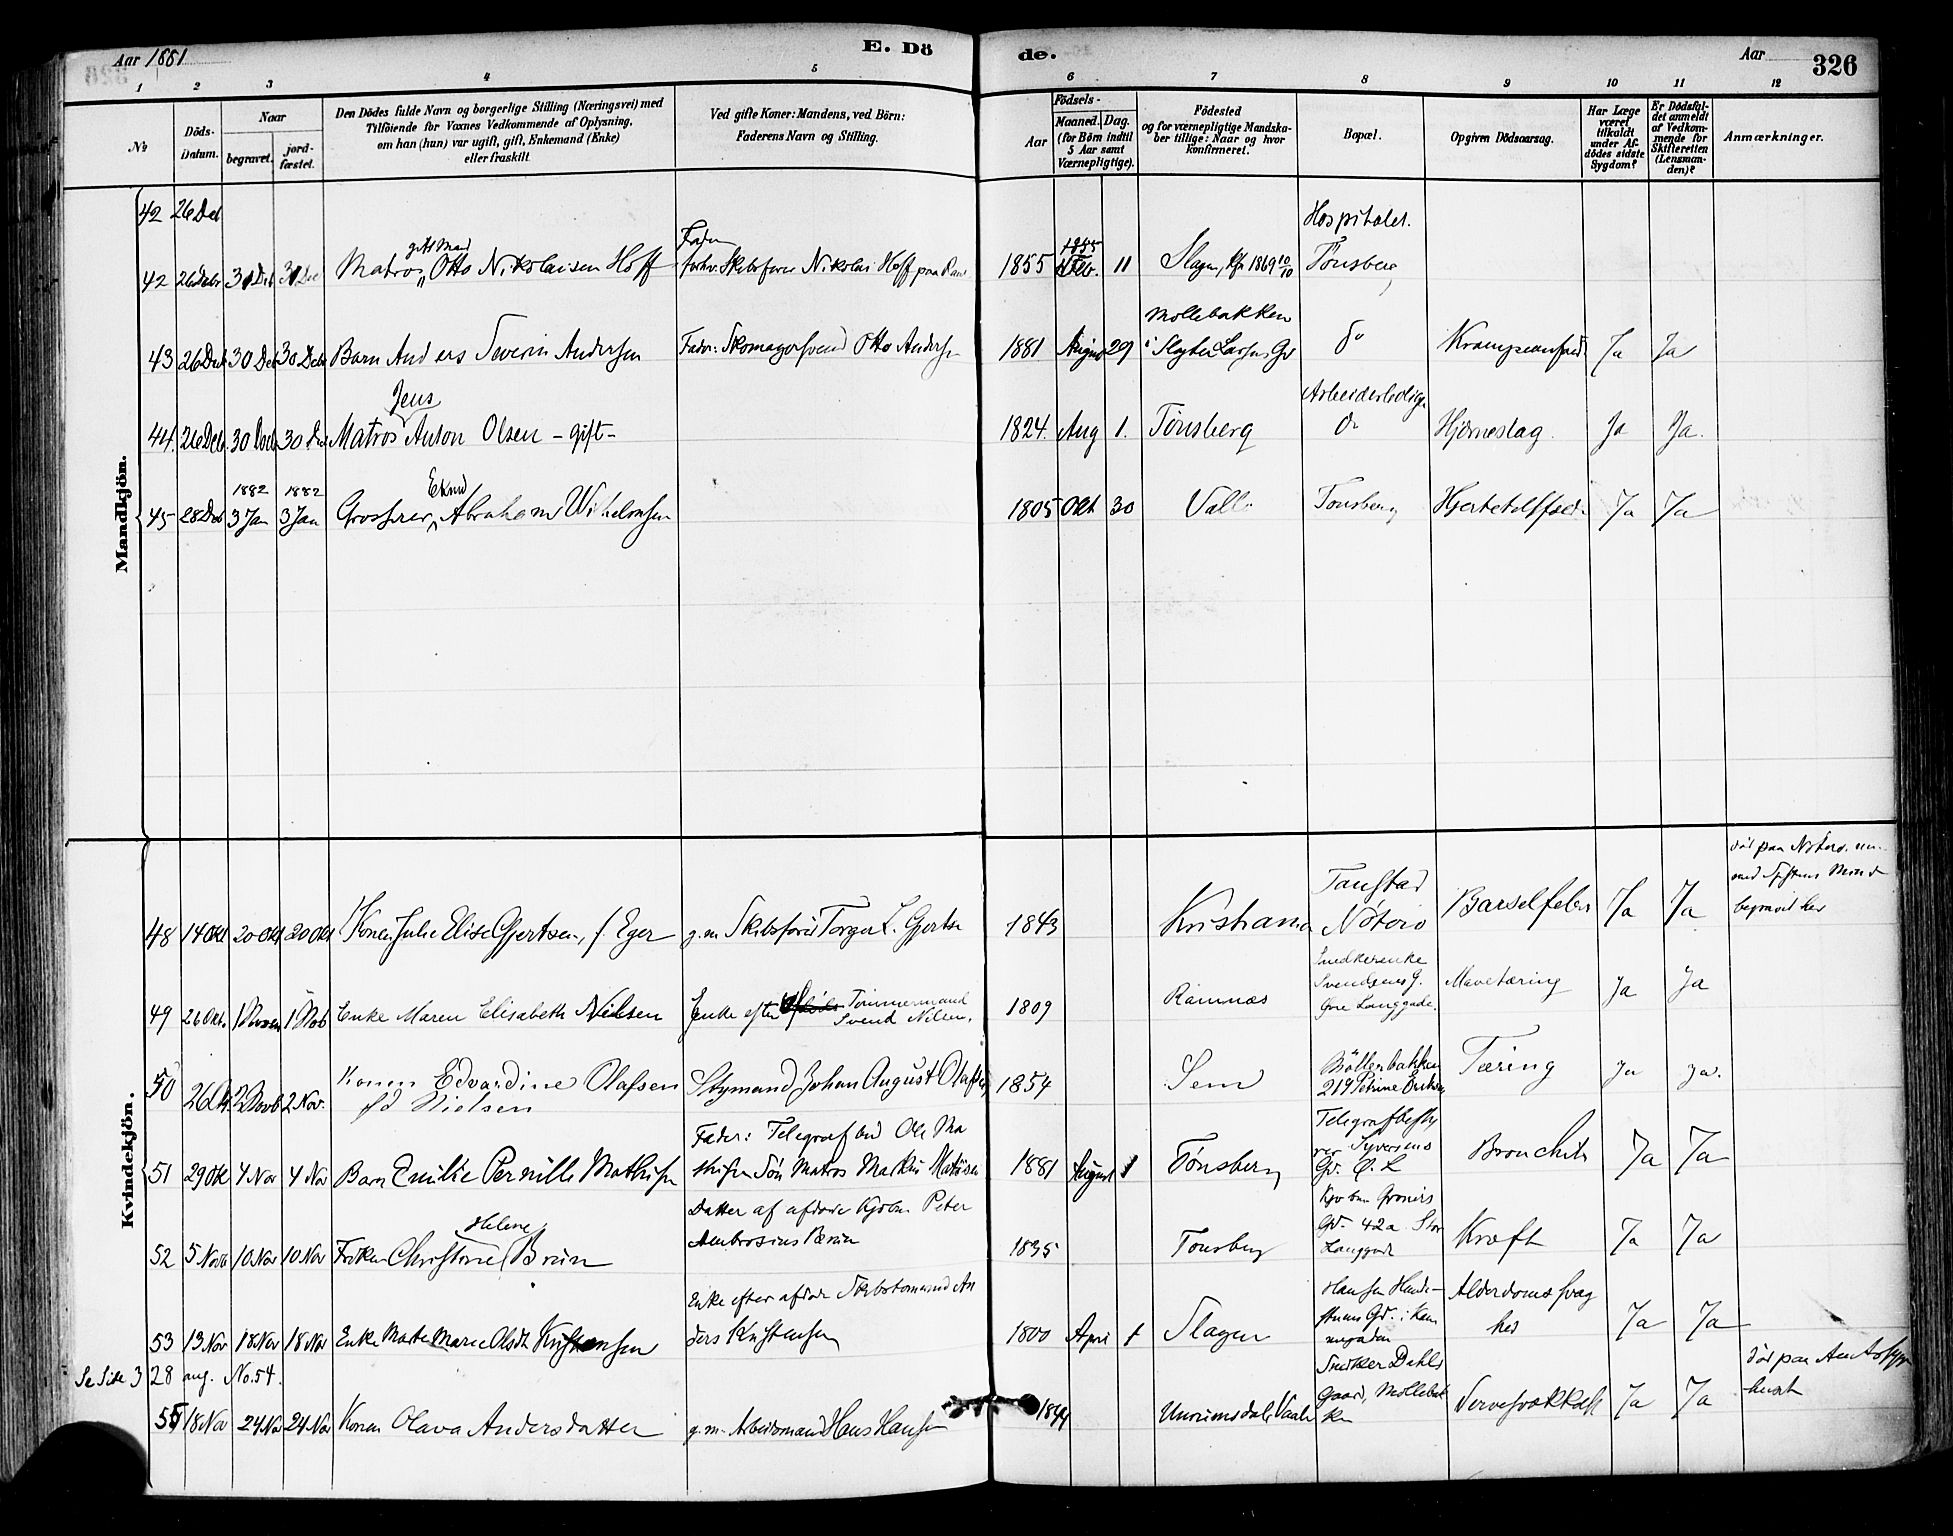 Aar 1881
E. Dö
de.
Aar
326
1 2 3 4 5 6 7 8 9 10 11 12
№
Döds-Datum.
Naar
begravet.
jord-fæstet.
Den Dödes fulde Navn og borgerlige Stilling (Næringsvei) med
Tilföiende for Voxnes Vedkommende af Oplysning,
om han (hun) var ugift, gift, Enkemand (Enke)
eller fraskilt.
Ved gifte Koner: Mandens, ved Börn:
Faderens Navn og Stilling.
Födsels-
Aar
Maaned.
Dag.
(for Börn indtil
5 Aar samt
Værnepligtige).
Födested
og for værnepligtige Mandska-
ber tillige: Naar og hvor
konfirmeret.
Bopæl.
Opgiven Dödsaarsag.
Har Læge
været
tilkaldt
under Af-
dödes sidste
Sygdom?
Er Dödsfal-
det anmeldt
af Vedkom-
mende for
Skifteretten
(Lensman-
den)?
Anmærkninger.
Mandkjön.
42 26 Deb
Hospitalet.
gift Mand
Fader
1855
42 26 Debr 31 Deb 31 Dec Matros Otto Nikolaisen Hoff forhv. Skibsfører Nikolai Hoff paa 1855 Feb. 11 Slagen, Kfr 1869 10/10 Tönsberg
Møllebakken
43 26 Deb 30 Deb 30 Debr Barn Anders Severin Andersen Fader: Skomagersvend Otto Andersen 1881 August 29 i Slagter Larsens Gd do Krampeanfald Ja Ja
Jens
Arbeiderbolig
44. 26 Deb. 30 Deb 30 Deb Matros Anton Olsen - gift - 1824. Aug 1. Tønsberg do Hjerneslag. Ja Ja.
1882 1882
Ekmd
45 28 Deb 3 Jan 3 Jan Grosserer Abraham Wilhelmsen 1805 Okt 30 Valle Tonsberg Ja Ja
Kvindekjön.
död paa Nöterö
Taustad
begravet her
48 14 Okt 20 Okt 20 Okt Konen Julie Elise Gjertsen, f. Eger g.m. Skibsförer Torger L. Gjertsen 1843 Kristiania Nöterö Barselfeber Ja Ja
Snedkerenke
Svendsens G.
Øvre Langgade.
49 26 Okt. 1 Novem 1 Nob Enke Maren Elisabeth Nielsen Enke efter Tömmermand Svend Nilsen. 1809 Ramnæs Mavetæring Ja Ja
50 26 Okt. 2 Novb 2 Nov. Konen Edvardine Olafsen Styrmand Johan August Olafsen 1854 Sem Möllerbakken Tæring Ja Ja.
fd Nielsen
219 Petrine Eriksen
Fader: Telegrafbud Ole Ma
Telegrafbesty
rer Syversens
51 29 Okt 4 Nov 4 Nov Barn Emilie Pernille Mathisen thisen Sön Matros Markus Matisen 1881 August 1 Tønsberg Gd. Ö. L Bronchitis Ja Ja
Datter af afdøde Kjøbm Peter
Helene
Kjøbm Grøners
Gd. 42a Stor
Langgade
52 5 Novb 10 Nov 10 Nov Frøken Christine Bruun Ambrosius Bruun 1835 Tonsberg Kræft Ja Ja
Enke efter afdøde Skibstømmermd An
Alderdomssvag
hed
53 13 Nov 18 Nov 18 Nov Enke Marte Marie Olsdt Kristensen ders Kristensen 1800 April 1 Slagen Ja Ja
Se Side 328 ang. No. 54.
död paa Amtssyge
huset
Snedker Dahls
Gaard, Mollebak
ken
55 18 Nov 24 Nov 24 Nov Konen Olava Andersdatter g.m. Arbeidsmand Hans Hansen 1844 Ja Ja